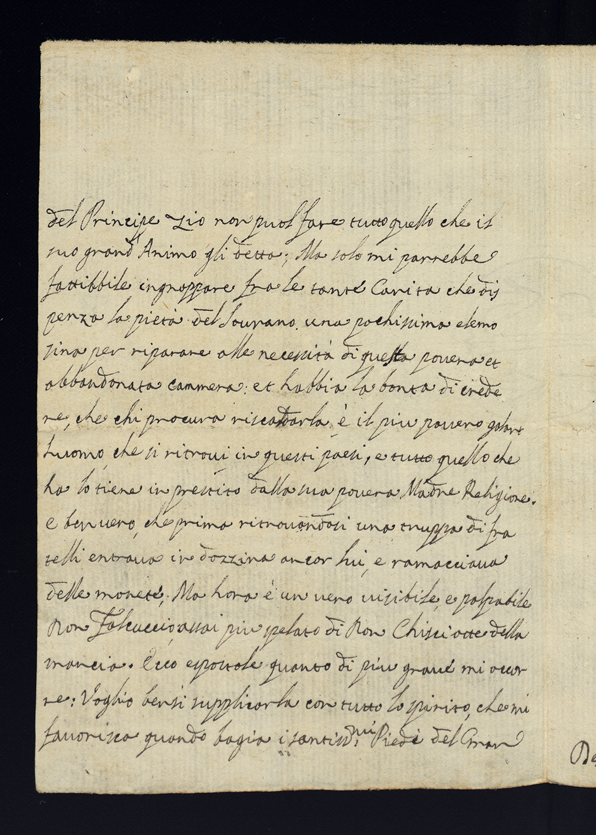 del Principe Zio non puol fare tutto quello che il
suo grand'Animo gli detta; Ma solo mi parrebbe
fattibbile ingroppare fra le tante Carita che dis
penza la pietà del Sourano, una pochissima elemo
sina per riparare alle necessità di questa povera et
abbandonata cammera: et habbia la bontà di crede
re, che chi procura riscaldarla è il piu povero galant
huomo, che si ritroui in questi paesi, e tutto quello che
ha lo tiene in prestito dalla sua povera Madre Religione.
e ben vero, che prima ritrouandosi una truppa di fra
telli entraua in dozzina ancor lui, e ramacciaua
delle monete; Ma hora è un vero uisibile, e palpabile
Ron Falcuccio, assai piu pelato di Ron Chisciotte della
mancia. Ecco espostole quanto di piu graue mi occor
re: Voglio bensi supplicarla con tutto lo spirito, che mi
fauorisca quando bagia i santiss.mi Piedi del Gran